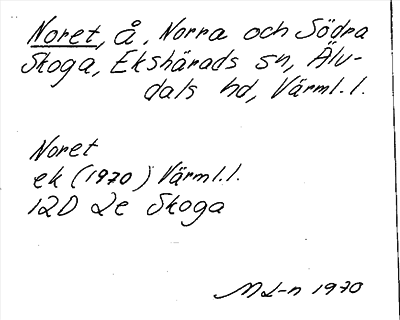 Noret, å, Norra och Södra
Skoga, Ekshärads sn, Älv-
dals hd, Värml. l.
Noret
ek (1970) Värml. l.
12D 2e Skoga
ML-n 1970